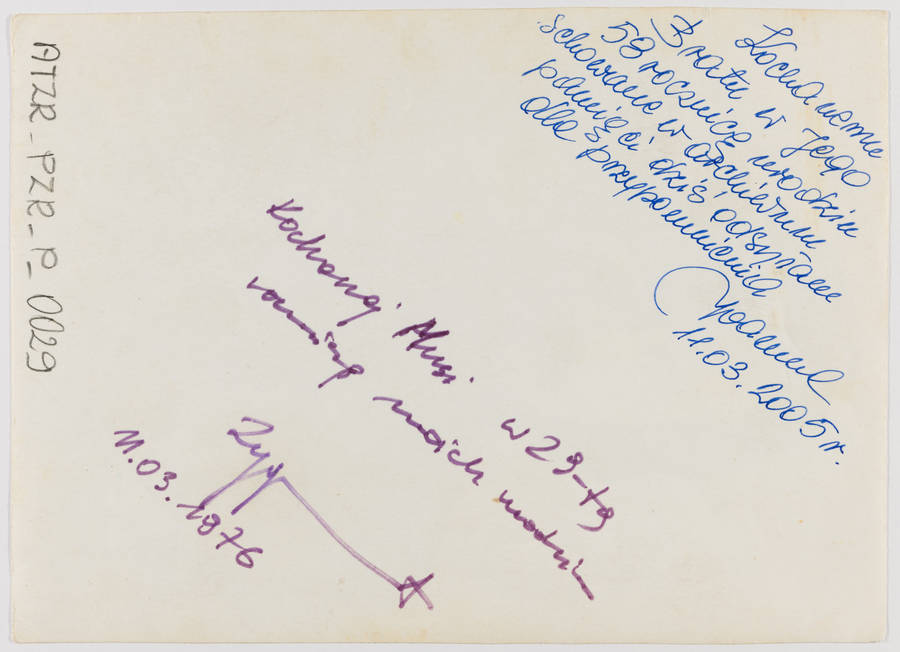 ATZR_PZR_P_0029
Kochanemu
Bratu w Jego
58 rocznicę urodzin
schowane w archiwum
pamięci dziś odsyłam
dla przypomnienia
Joanna
11.03.2005 r.
Kochanej Musi w 29-tą
rocznicę moich urodzin
11.03.1976